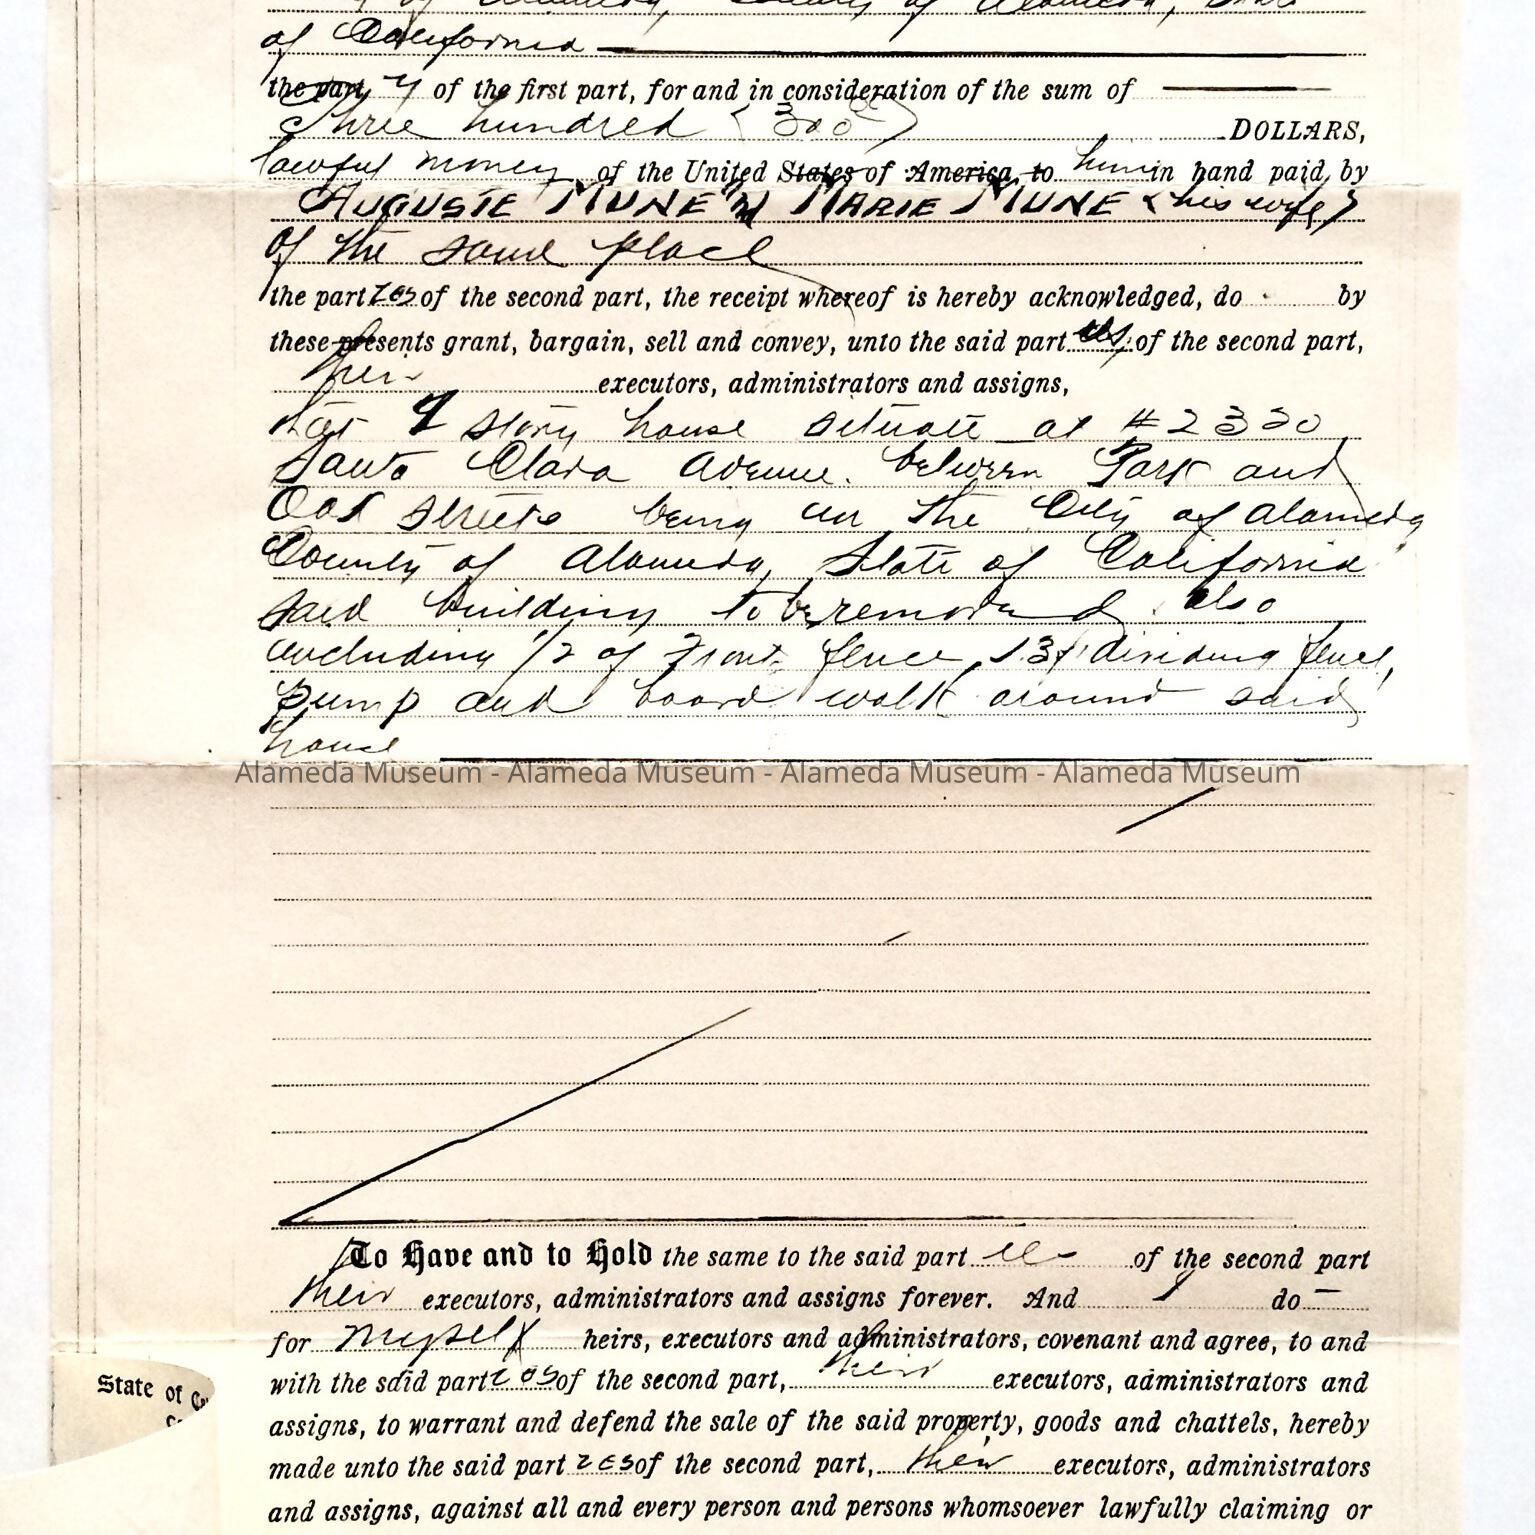 of Alameda, County of Alameda, State
of California
the party of the first part, for and in consideration of the sum of
Three hundred (300) DOLLARS,
lawful money of the United States of America, to him in hand paid, by
AUGUSTE MUNE & MARIE MUNE (his wife)
of the same place
the parties of the second part, the receipt whereof is hereby acknowledged, do by
these presents grant, bargain, sell and convey, unto the said parties of the second part,
their executors, administrators and assigns,
story house situate at #2320
Santa Clara Avenue. between Park and
Oak Streets being in the City of Alameda
County of Alameda, State of California
said building to be removed. also
including 1/2 of Front fence, dividing fence,
pump and board walk around said
house
Alameda Museum - Alameda Museum - Alameda Museum - Alameda Museum
To Have and to Hold the same to the said part ies of the second part
their executors, administrators and assigns forever. And I do
for myself heirs, executors and administrators, covenant and agree, to and
with the said parties of the second part, their executors, administrators and
State of
assigns, to warrant and defend the sale of the said property, goods and chattels, hereby
made unto the said part ies of the second part, their executors, administrators
and assigns, against all and every person and persons whomsoever lawfully claiming or